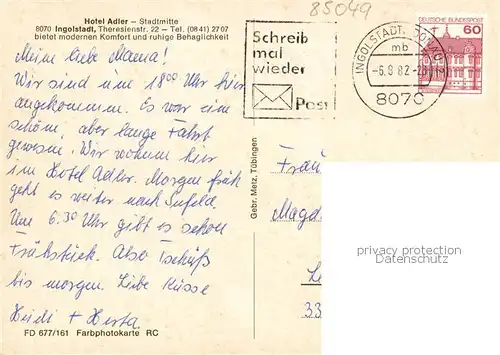 85049
Hotel Adler – Stadtmitte
8070 Ingolstadt, Theresienstr. 22 – Tel. (0841) 27 07
bietet modernen Komfort und ruhige Behaglichkeit
Meine liebe Mama!
Wir sind um 18⁰⁰ Uhr hier
angekommen. Es war eine
schöne, aber lange Fahrt
gewesen. Wir wohnen hier
im Hotel Adler. Morgen früh
geht es weiter nach
Um 6.30 Uhr gibt es schon
Frühstück. Also Tschüß
bis morgen Liebe Küsse
Heidi + Herta
FD 677/161 Farbphotokarte RC
Gebr. Metz, Tübingen
Schreib
mal
wieder
Post
INGOLSTADT, DONAU
mb
8070
DEUTSCHE BUNDESPOST
60
Frau
Magd
33
privacy protection